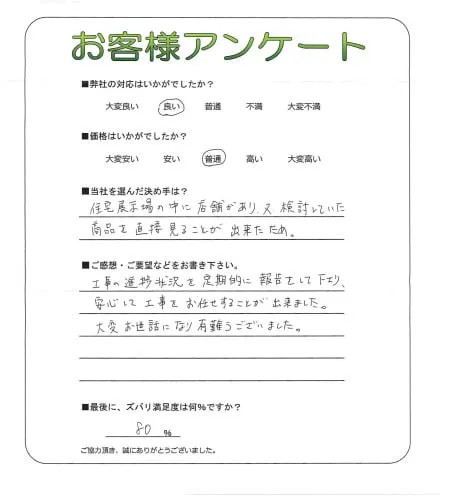 お客様アンケート
■弊社の対応はいかがでしたか？
大変良い 良い 普通 不満 大変不満
■価格はいかがでしたか？
大変安い 安い 普通 高い 大変高い
■当社を選んだ決め手は？
住宅展示場の中に店舗があり、又検討していた
商品を直接見ることが出来たため。
■ご感想・ご要望などをお書き下さい。
工事の進捗状況を定期的に報告をして下さり、
安心して工事をお任せすることが出来ました。
大変お世話になり有難うございました。
■最後に、ズバリ満足度は何％ですか？
80 %
ご協力頂き、誠にありがとうございました。